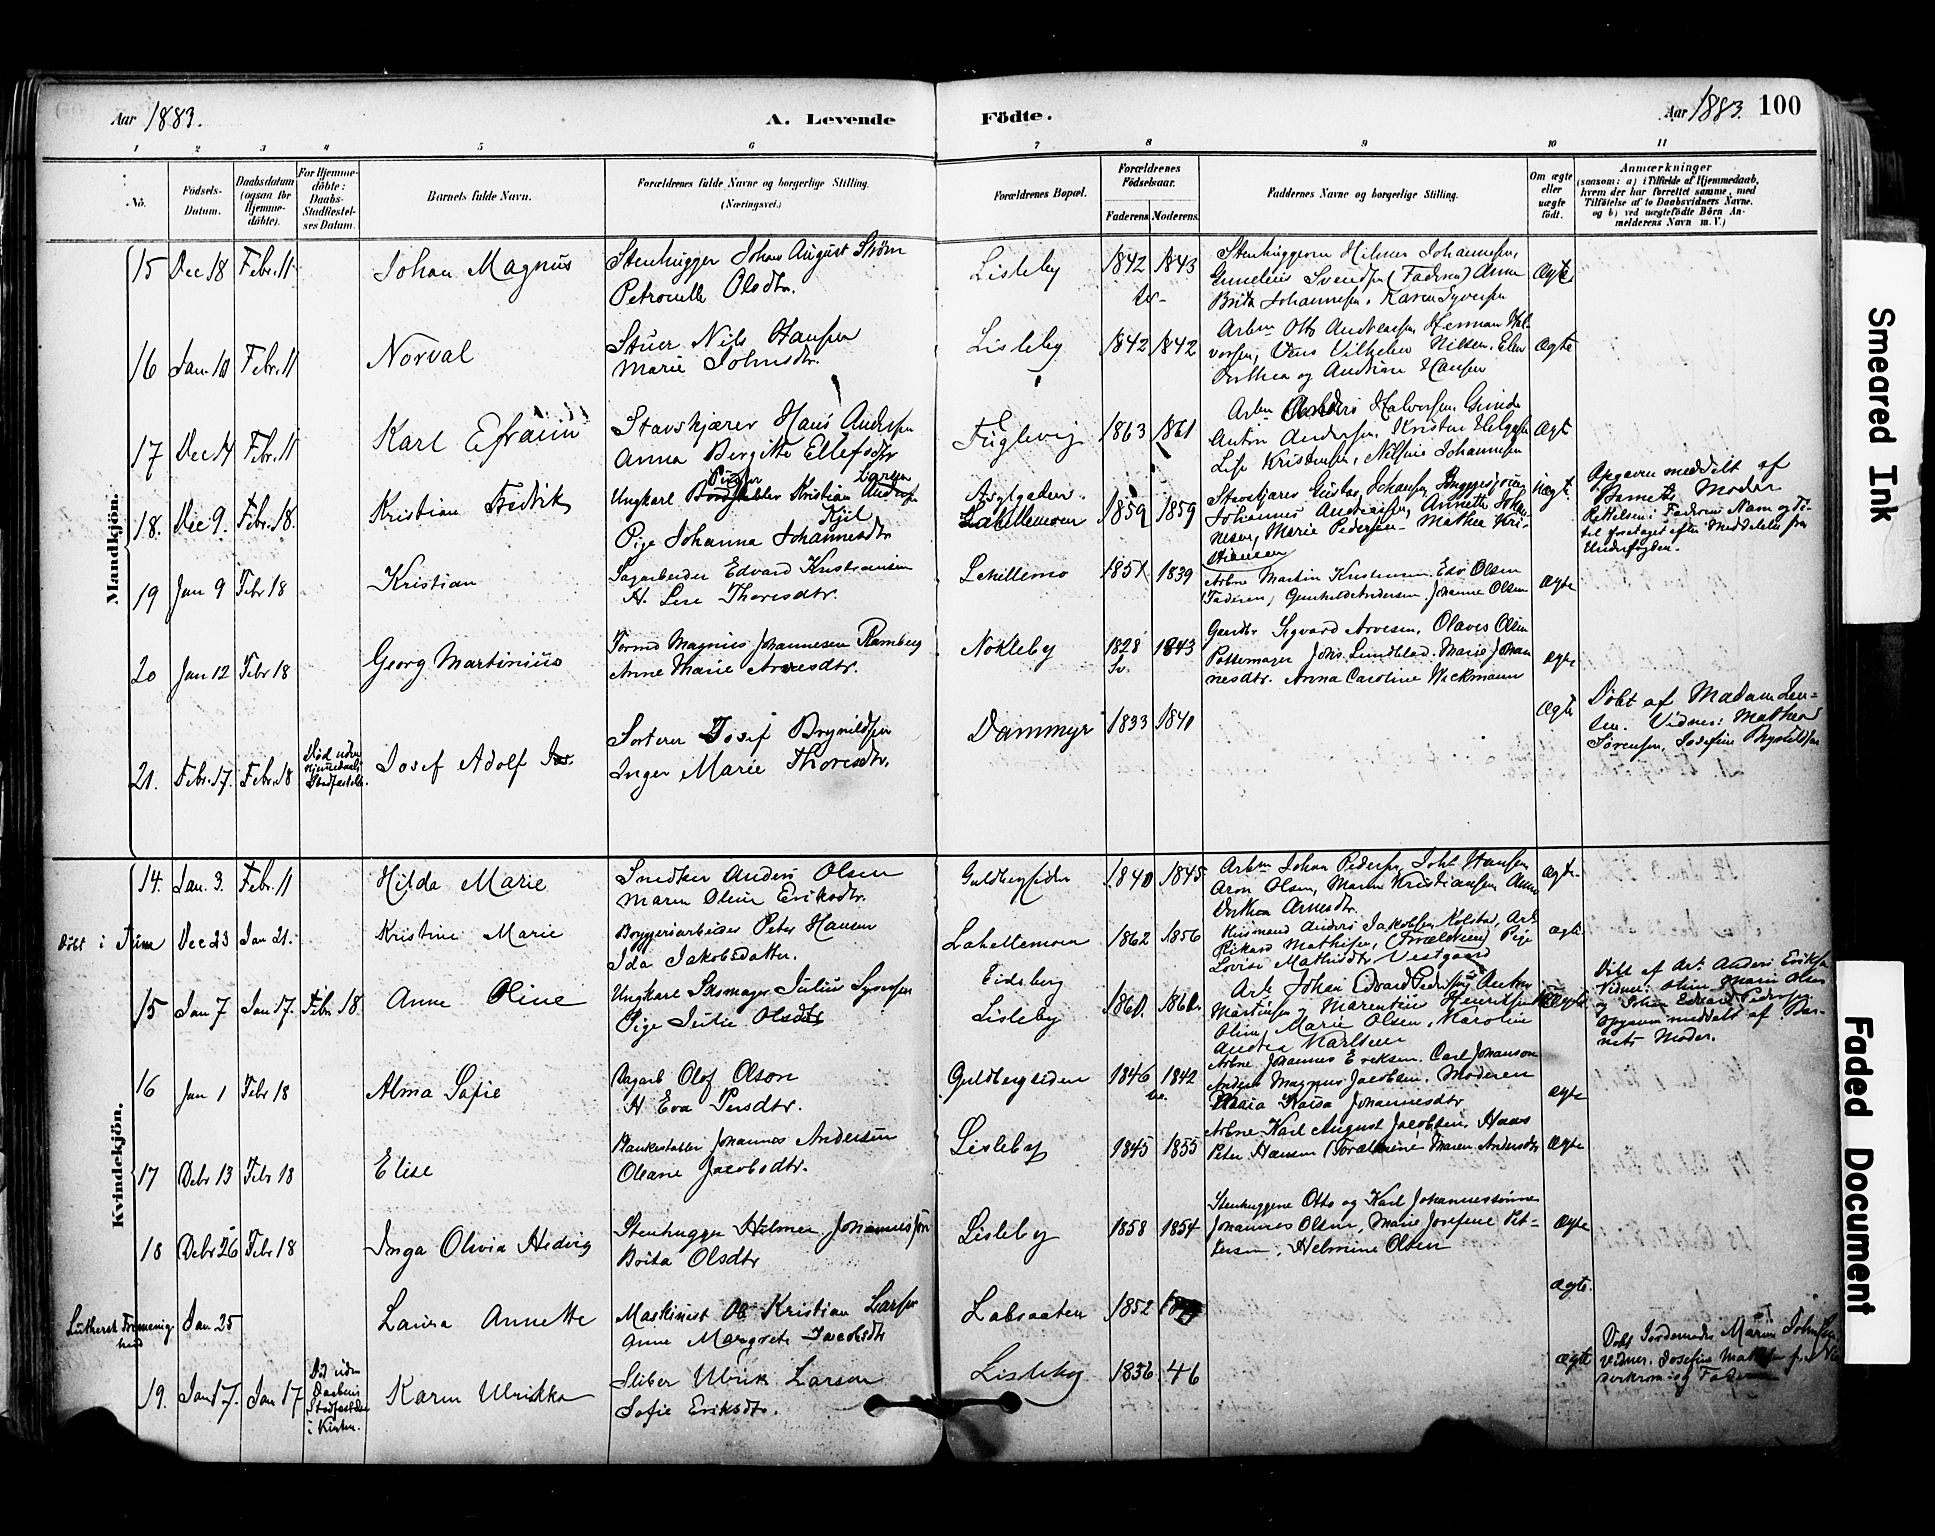 Aar 1883.
A. Levende Födte.
Aar 1883. 100
1 2 3 4 5 6 7 8 9 10 11
No.
Födsels-Datum.
Daabsdatum (ogsaa for Hjemme-döbte).
For Hjemme-döbte: Daabs-Stadfæstel-ses Datum.
Barnets fulde Navn.
Forældrenes fulde Navne og borgerlige Stilling.
(Næringsvei.)
Forældrenes Bopæl.
Forældrenes Födselsaar.
Faderens Moderens
Faddernes Navne og borgerlige Stilling.
Om ægte eller uægte födt.
Anmærkninger
(saasom: a) i Tilfælde af Hjemmedaab, hvem der har forrettet samme, med Tilföielse af to Daabsvidners Navne, og b) ved uægtefödte Börn An-melderens Navn m. V.)
Mandkjön.
15 Dec 18 Febr. 11 Johan Magnus
Stenhugger Johan August Strøm
Petronelle Olsdtr.
Lisleby 1842 1843
Stenhuggerne Hilmer Johannesen,
Svendsen (Faderen) Anna
Brita Johannesen, Karen Syversen
Ægte
16 Jan. 10 Febr. 11 Norval
Stuer Nils Hansen
Marie Johnsdtr.
Lisleby 1842 1842
Arbm Otto Andreassen, Herman Hal-
vorsen, Vilhelm Nilsen, Elen
Dorthea og Andrine Hansen
Ægte
17 Dec 14 Febr. 11 Karl Efraim
Stavskjærer Hans Andersen
Anna Birgitte Ellefsdtr
Fuglevig 1863 1861
Arbm Anders Halvorsen,
Anton Andersen, Kristen Helgesen
Lise Kristensen, Nilsine Johannesen
Ægt
18. Dec 9. Febr. 18. Kristian Fredrik
Ungkarl Kristian Larsen
Kjil
Pige Johanna Johannesdtr
Labellemoen 1859 1859
Stavskjærer Gustav Johansen, Byggesjouer
Johannes Andreassen, Annette Johan-
nesen, Marie Pedersen - Mathea Kri-
stiansen
Uægte.
Opgaven meddelt af
Barnets Moder
Rettelsen i Faderens Navn og Ti-
tel foretaget efter Meddelelse fra
Underfogden.
19 Jan 9 Febr 18 Kristian
Sagarbeider Edvard Kristiansen
H. Lise Thoresdtr.
Labellemo 1851 1839
Arbne Martin Kristensen, Edv Olsen
(Faderen) Gunhilde Andersen Johanne Olsen
Ægte
20 Jan 12 Febr 18 Georg Martinius
Formd Magnus Johannesen Ramberg
Anne Marie Arvesdtr.
Nokleby 1828 1843
Sv.
Gaardbr Sigvard Arvesen, Olaves Olsen
Pottemager Johs. Lundblad. Marie Johan
nesdtr. Anna Caroline Wickmann
Ægte
21. Febr. 17. Febr. 18
Død uden
Hjemmedaabs
Stadfæstelse.
Josef Adolf
Sorterer Josef Brynildsen
Inger Marie Thoresdtr.
Dammyr 1833 1840
Ægte
Døbt af Madam Jen-
sen. Vidner: Mathea
Sørensen, Josefine Brynildsen
Kvindekjön.
14. Jan. 3. Febr. 11 Hilda Marie
Snedker Anders Olsen
Maren Oline Eriksdtr.
Guldbergsiden 1840 1845
Arbm Johan Pedersen, Johs Hansen
Aron Olsen, Maren Kristiansen Anne
Dorthea Arnesdtr.
Ægte.
Døbt i Tune Dec 23 Jan 21. Kristine Marie
Byggeriarbeider Peter Hansen
Ida Jakobsdatter.
Labellemoen 1862 1856
Husmand Anders Jakobsen Kolstad, Arb
Rikard Mathisen, (Forældrene) Pige
Lovise Mathisdtr Vestgaard
Ægte
15 Jan 7 Jan 17. Febr. 18 Anne Oline
Ungkarl Skomager Julius Syversen
Pige Julie Olsdtr
Eidsberg
Lisleby
Arb Johan Edvard Pedersen Anton
Martinsen, Marentius Henriksen
Oline Marie Olsen, Karoline
Andrea Karlsen
Uægte
Døbt af Arb. Anders Eriksen
Vidner: Oline Marie Olsen
og Johan Edvard Pedersen
Opgaven meddelt af Bar-
nets Moder.
16 Jan 1 Febr 18 Alma Sofie
Dagarb Olof Olson
H Eva Persdtr.
Guldbergsiden 1846 1842
Arbne Johannes Eriksen. Carl Johanson
Anders Magnus Jacobsen. Moderen
Maia Kaisa Johannesdtr
Ægte
17 Debr 13 Febr 18 Elise
Plankestabler Johannes Andersen
Oleane Jacobsdtr.
Lisleby 1845 1855
Arbne Karl August Jacobsen, Hans
Peter Hansen (Forældrene Maren Andersdtr
Ægte
18 Debr 26 Febr 18 Inga Olivia Hedvig
Stenhugger Helmer Johannesson
Brita Olsdtr
Lisleby 1858 1854
Stenhuggerne Otto og Karl Johannessønner
Johannes Olsen, Marie Josefine Pet-
tersen, Helmine Olsen
Ægte
Luthersk Frimenig-
hed Jan 25 Laura Annette
Maskinist Kristian Larsen
Anne Margrete Jacobsdtr
Labraaten 1852
Ægte.
19. Jan 17. Jan 17
Død uden
Daabens
Stadfæstelse
i Kirken.
Karen Ulrikka
Sliber Ulrik Larsen
Sofie Eriksdtr.
Lisleby 1836 46
Ægte
Døbt Jordemoder Maren Johnsen
Vidner. Josefine
og Faderen
Smeared Ink
Faded Document